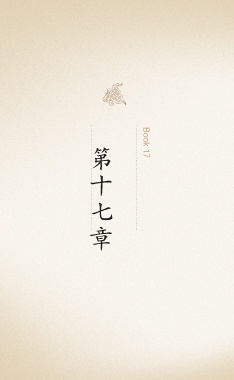 Book 17
第十七章